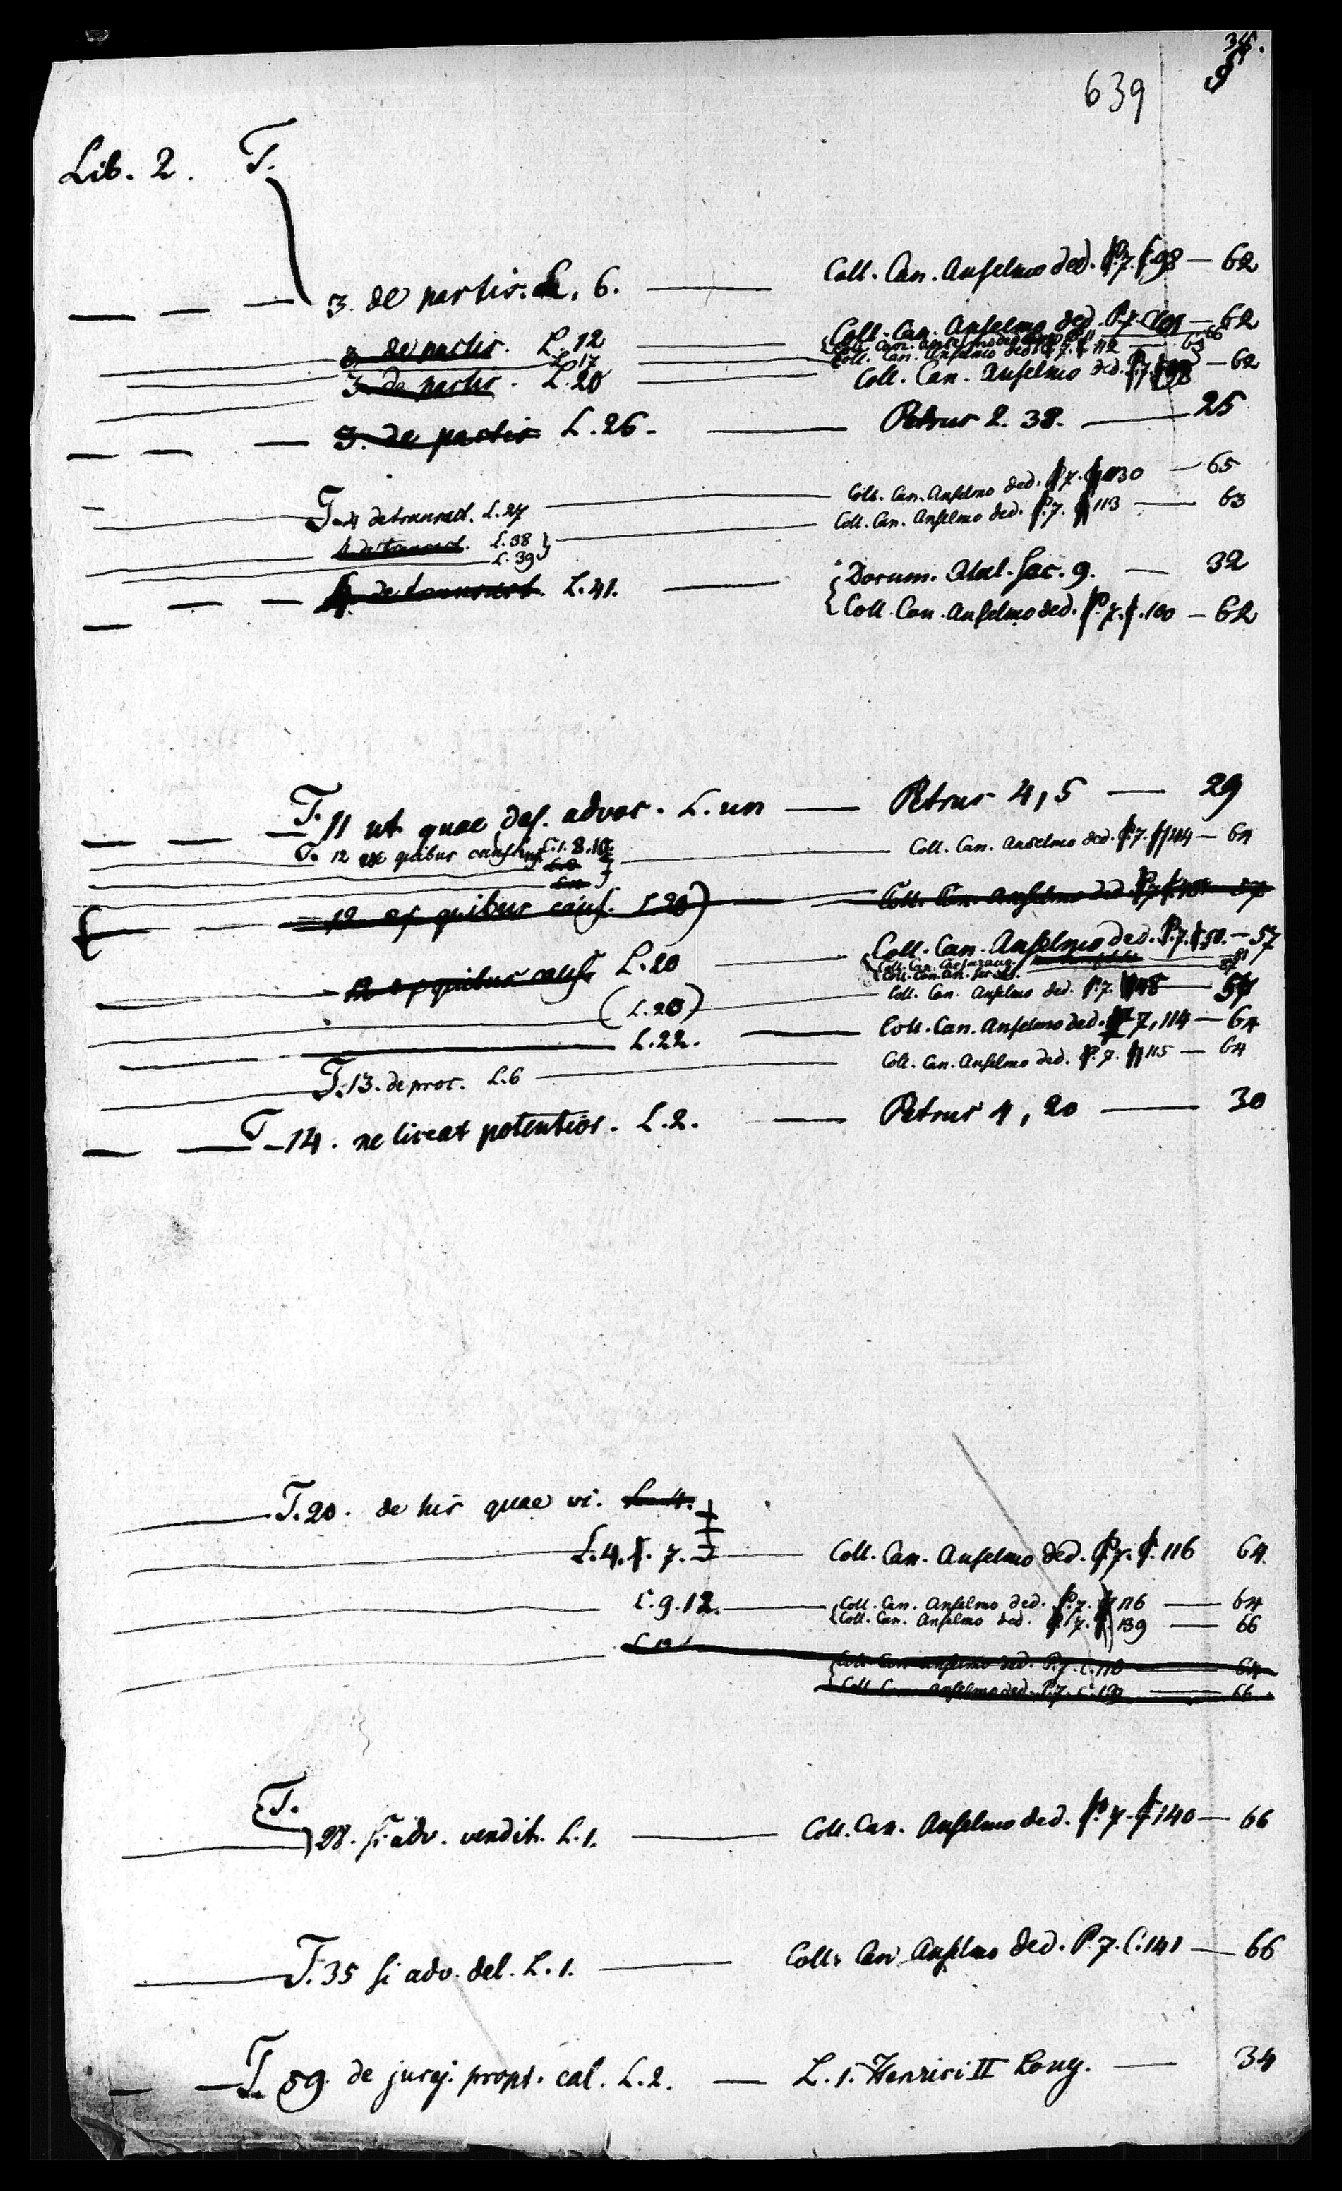 639
Lib. 2. T.
3. de pactis. L. 6. — Coll. Can. Anselmo ded. P. 7. 98 — 62
3 de pactis. L. 12 — Coll. Can. Anselmo ded. P. 7. — 62
L. 17 Coll. Can. Anselmo ded. 112 — 63
3. de pactis. L. 20 — Coll. Can. Anselmo ded. — 62
3. de pactis L. 26. — Petrus 2. 38. — 25
T. 4 de transact. L. 27 — Coll. Can. Anselmo ded. P. 7. 130 — 65
4 de transact. L. 38 } — Coll. Can. Anselmo ded. P. 7. 113 — 63
L. 39 }
4. de transact. L. 41. — { Docum. Ital. Sec. 9. — 32
{ Coll. Can. Anselmo ded. P. 7. 100 — 62
T. 11 ut quae des. advoc. L. un — Petrus 4, 5 — 29
T. 12 ex quibus causis L. 1. 8. 10 — Coll. Can. Anselmo ded. P. 7. 114 — 64
12 ex quibus caus. L. 20) — Coll. Can. Anselmo ded. 57
12 ex quibus caus. L. 20 — Coll. Can. Anselmo ded. P. 7. 50. — 57
(L. 20) — Coll. Can. Anselmo ded. P. 7. 48 — 57
L. 22. — Coll. Can. Anselmo ded. P. 7, 114 — 64
T. 13. de proc. L. 6 — Coll. Can. Anselmo ded. P. 7. 115 — 64
T. 14. ne liceat potentior. L. 2. — Petrus 4, 20 — 30
T. 20. de his quae vi. L. 4.
L. 4. 7. — Coll. Can. Anselmo ded. P. 7. 116 64
L. 9. 12. — { Coll. Can. Anselmo ded. P. 7. 116 — 64
{ Coll. Can. Anselmo ded. P. 7. 139 — 66
L. 12 { Coll. Can. Anselmo ded. P. 7. C. 116 — 64
{ Coll. Can. Anselmo ded. P. 7. C. 139 — 66
T.
28. si adv. vendit. L. 1. — Coll. Can. Anselmo ded. P. 7. 140 — 66
T. 35 si adv. del. L. 1. — Coll. Can Anselmo ded. P. 7. C. 141 — 66
T. 59 de jurej. propt. cal. L. 2. — L. 1. Henrici II Long. — 34